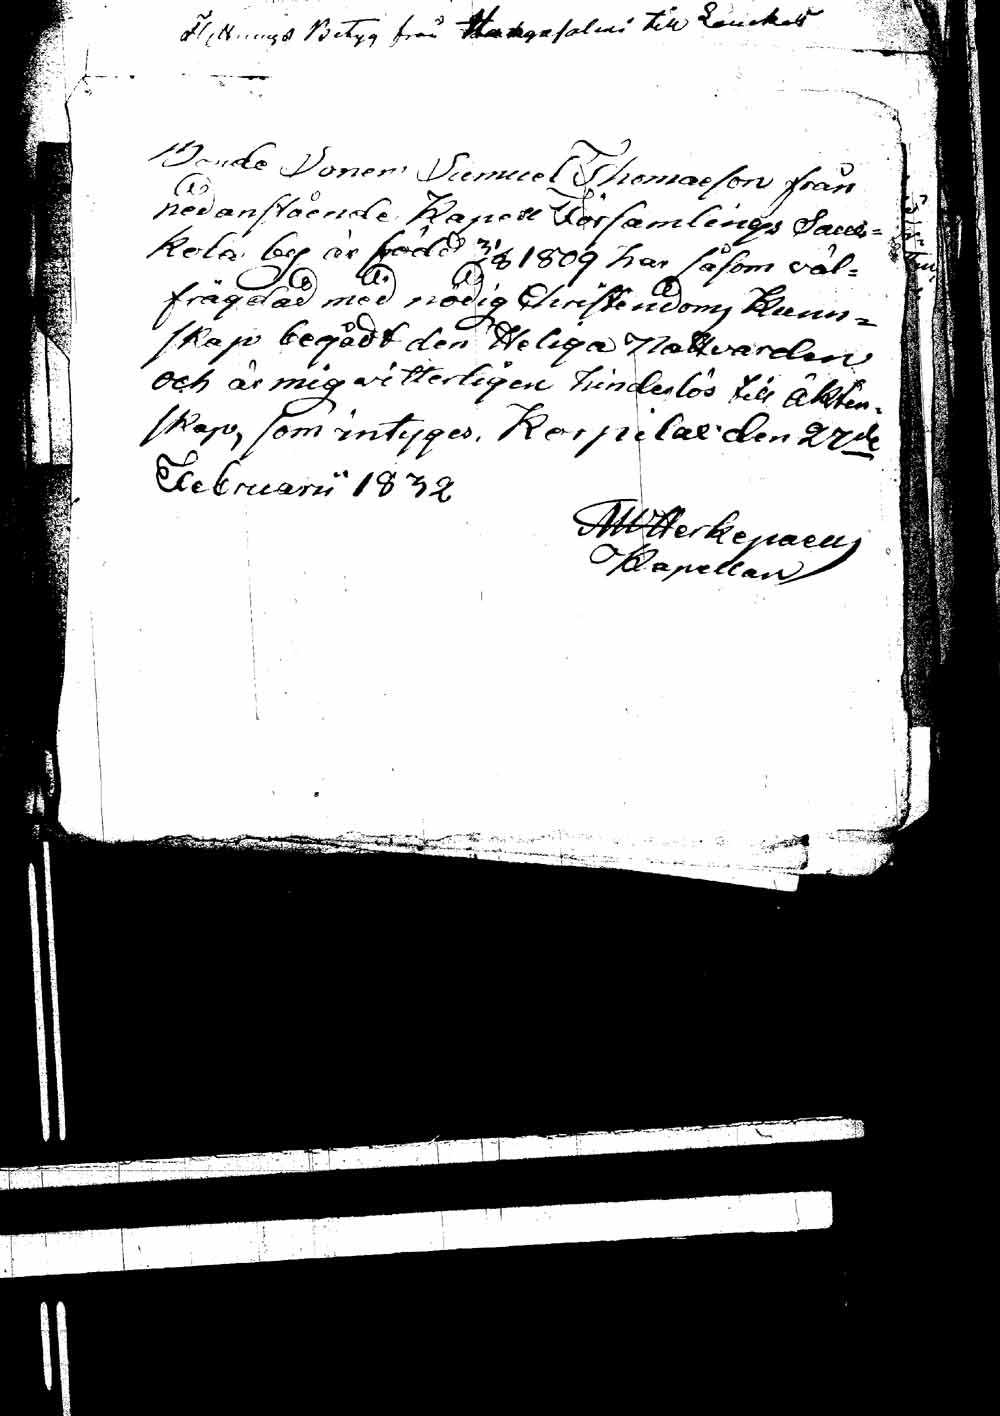 Flyttnings Betyg från Kangasalmi till
Bonde Sonen Samuel Thomaeson från
nedanstående Kapell Församlings Saus=
kola by är född 3/8 1809 har såsom väl=
frägdad med nödig Christendoms Kunn=
skap begådt den Heliga Nattvarden
och är mig vitterligen hinderlös till Äkten=
skap, som intyges. Korpilax den 27de
Februarii 1832
Herkepaeus
Kapellan